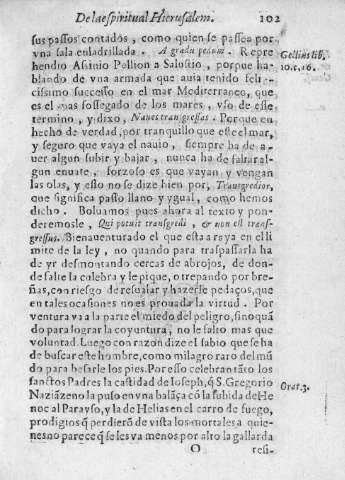 De la espiritual Hierusalem. 102
sus passos contados, como quien se passea por
vna sala enladrillada. A gradu pedum. Repre
hendio Assinio Pollion a Salustio, porque ha-
blando de vna armada que auia tenido feli-
cissimo successo en el mar Mediterraneo, que
es el mas sossegado de los mares, vso de este
termino, y dixo, Naues transgressas. Porque en
hecho de verdad, por tranquillo que este el mar,
y seguro que vaya el nauio, siempre ha de a
uer algun subir y bajar, nunca ha de faltar al-
gun enuate, forzoso es que vayan y vengan
las olas, y esso no se dize bien por, Transgredior,
que significa passo llano y ygual, como hemos
dicho. Boluamos pues ahora al texto y pon-
deremosle, Qui potuit transgredi, & non est trans-
gressus. Bienauenturado el que esta a raya en el li
mite de la ley, no quando para traspassarla ha
de yr desmontando cercas de abrojos, de don-
de salte la culebra y le pique, o trepando por bre-
ñas, con riesgo de resualar y hazerse pedaços, que
en tales ocasiones no es prouada la virtud. Por
ventura va a la parte el miedo del peligro, sino quã
do para lograr la coyuntura, no le falto mas que
voluntad. Luego con razon dize el sabio que se ha
de buscar este hombre, como milagro raro del mũ
do para besarle los pies. Por esso celebran tãto los
sanctos Padres la castidad de Ioseph, q̃ S. Gregorio
Naziãzeno la puso en vna balãça cõ la subida de He
noc al Parayso, y la de Helias en el carro de fuego,
prodigios q̃ perdierõ de vista los mortales a quie-
nes no parece q̃ se les va menos por alto la gallarda
O resi-
Gellius lib.
10. c. 26.
Orat. 3.